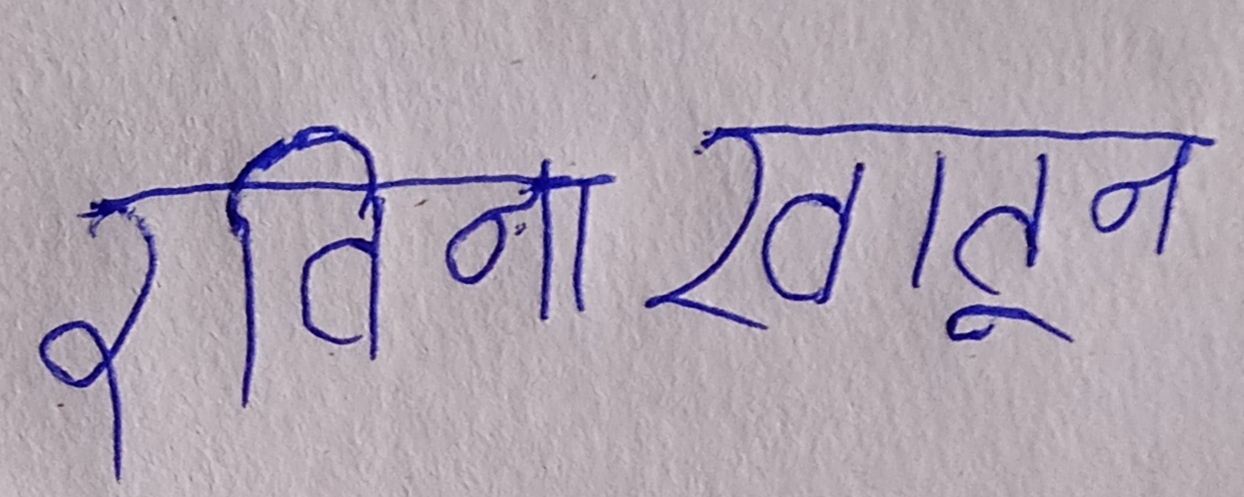 रविना खातून